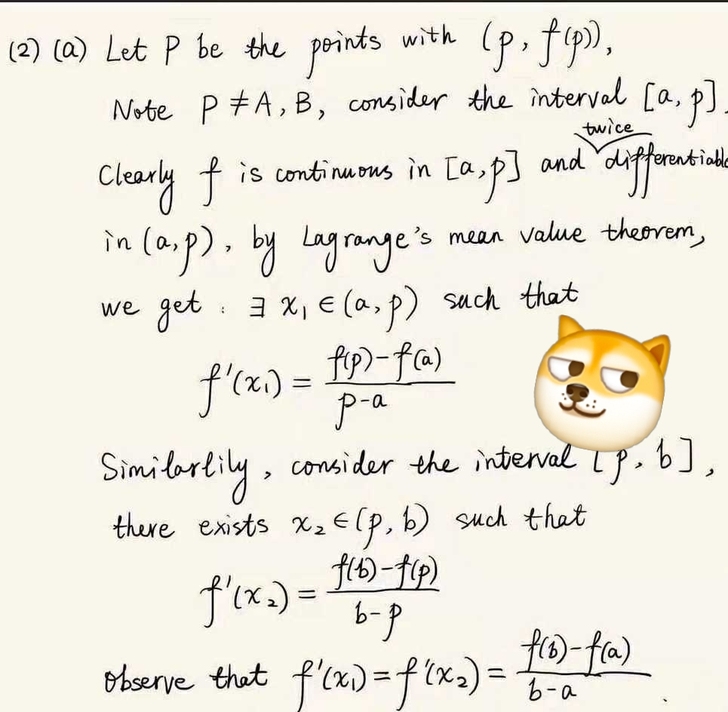 (2) (a) Let P be the points with (p, f(p)),
Note P ≠ A, B, consider the interval [a, p].
twice
Clearly f is continuous in [a, p] and differentiable
in (a, p), by Lagrange's mean value theorem,
we get : ∃ x₁ ∈ (a, p) such that
f'(x₁) = f(p) - f(a) / p - a
Similarlily, consider the interval [p, b],
there exists x₂ ∈ (p, b) such that
f'(x₂) = f(b) - f(p) / b - p
Observe that f'(x₁) = f'(x₂) = f(b) - f(a) / b - a .